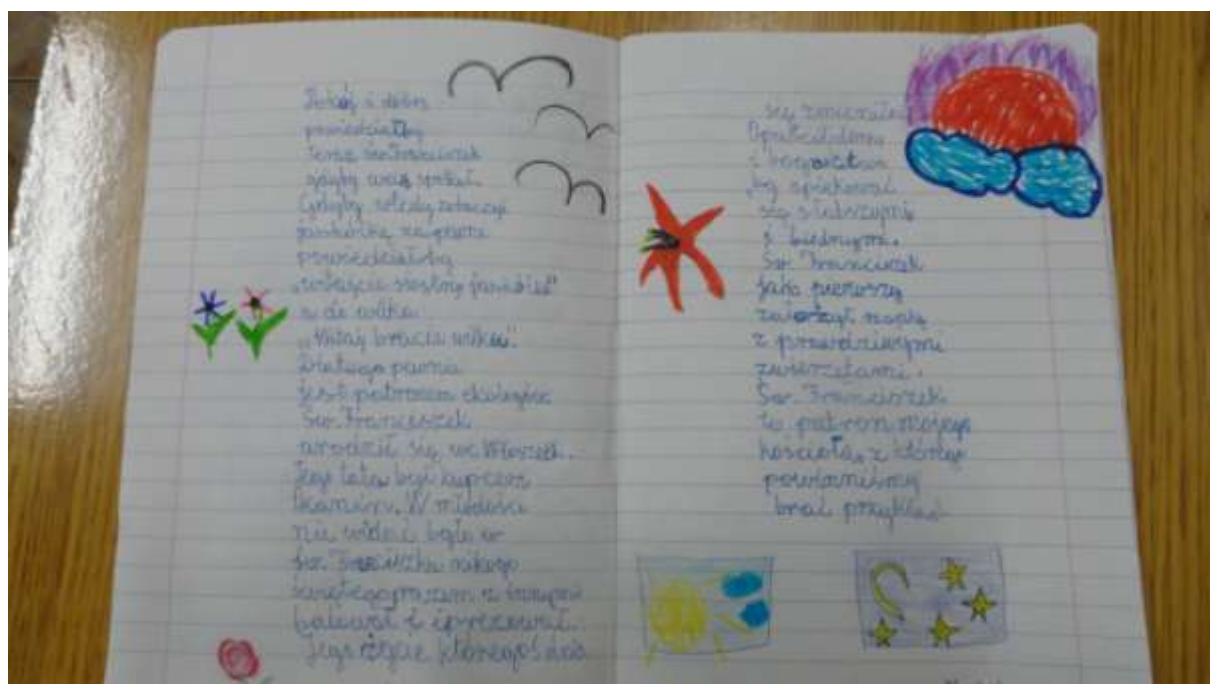 Pokój i dobro
powiedziałby
teraz św. Franciszek
gdyby was spotkał.
Gdyby wtedy zobaczył
jaskółkę na pewno
powiedziałby
„witajcie siostry jaskółki"
a do wilka
„Witaj bracie wilku".
Dlatego pewnie
jest patronem ekologów
Św. Franciszek
urodził się we Włoszech.
Jego tata był kupcem
tkanin. W młodości
nie widać było w
św. Franciszku nikogo
świętego razem z innymi
balował i imprezował.
Jego życie któregoś dnia
się zmieniło
Opuścił dom
i bogactwo
by opiekować
się słabszymi
i biednymi.
Św. Franciszek
jako pierwszy
założył szopkę
z prawdziwymi
zwierzętami.
Św. Franciszek
to patron mojego
kościoła, z którego
powinniśmy
brać przykład